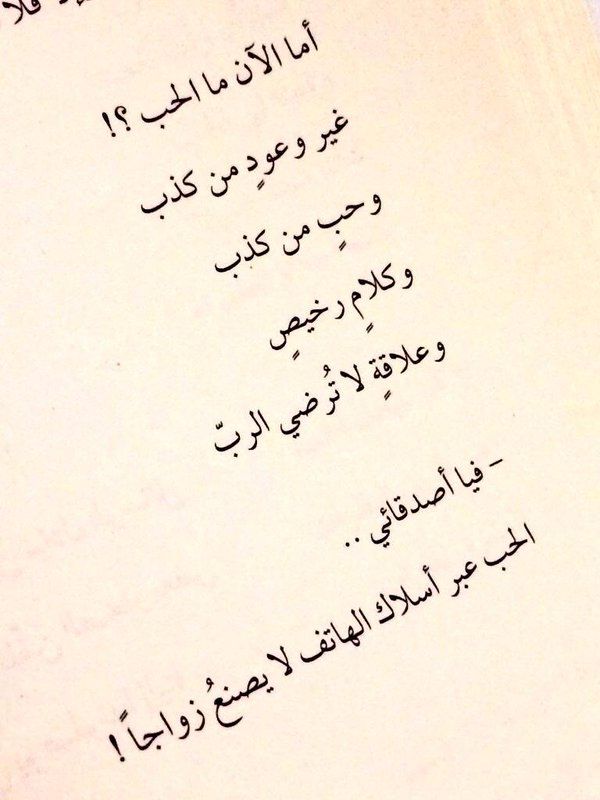 أما الآن ما الحب ؟!
غير وعودٍ من كذب
وحبٍ من كذب
وكلامٍ رخيصٍ
وعلاقةٍ لا تُرضي الربّ
- فيا أصدقائي ..
الحب عبر أسلاك الهاتف لا يصنعُ زواجاً !